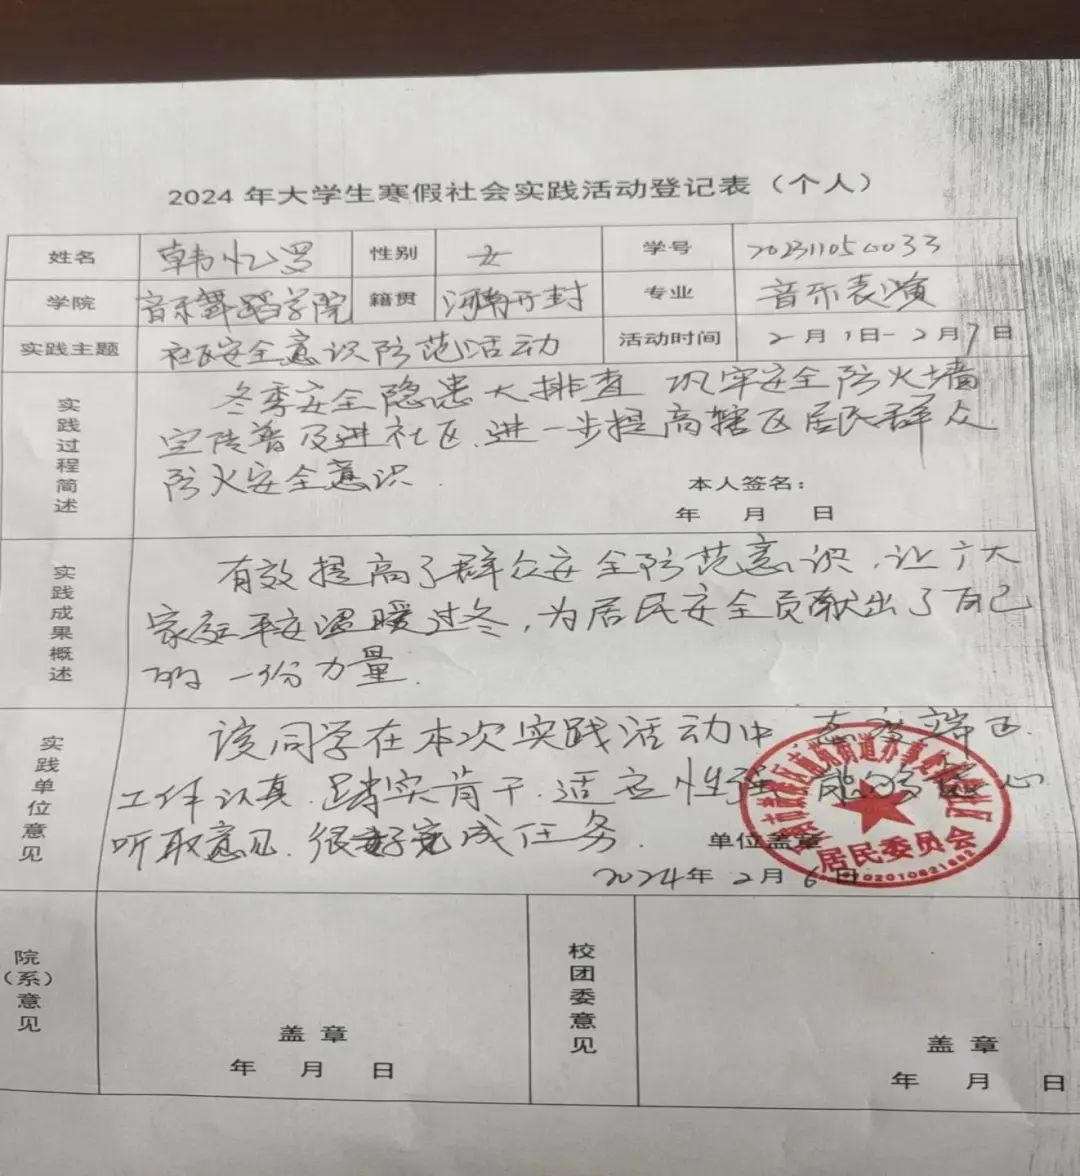 2024年大学生寒假社会实践活动登记表（个人）
姓名 韩忆罗 性别 女 学号
学院 音乐舞蹈学院 籍贯 河南开封 专业 音乐表演
实践主题 社区安全意识防范活动 活动时间 2月1日-2月7日
实践过程简述
冬季安全隐患大排查 巩牢安全防火墙
宣传普及进社区.进一步提高辖区居民群众
防火安全意识.
本人签名：
年 月 日
实践成果概述
有效提高了群众安全防范意识,让广大
家庭平安温暖过冬,为居民安全贡献出了自己
的一份力量.
实践单位意见
该同学在本次实践活动中,态度端正.
工作认真.踏实肯干.适应性强 能够虚心
听取意见.很好完成任务.
单位盖章
2024年2月6日
居民委员会
院（系）意见
盖章
年 月 日
校团委意见
盖章
年 月 日